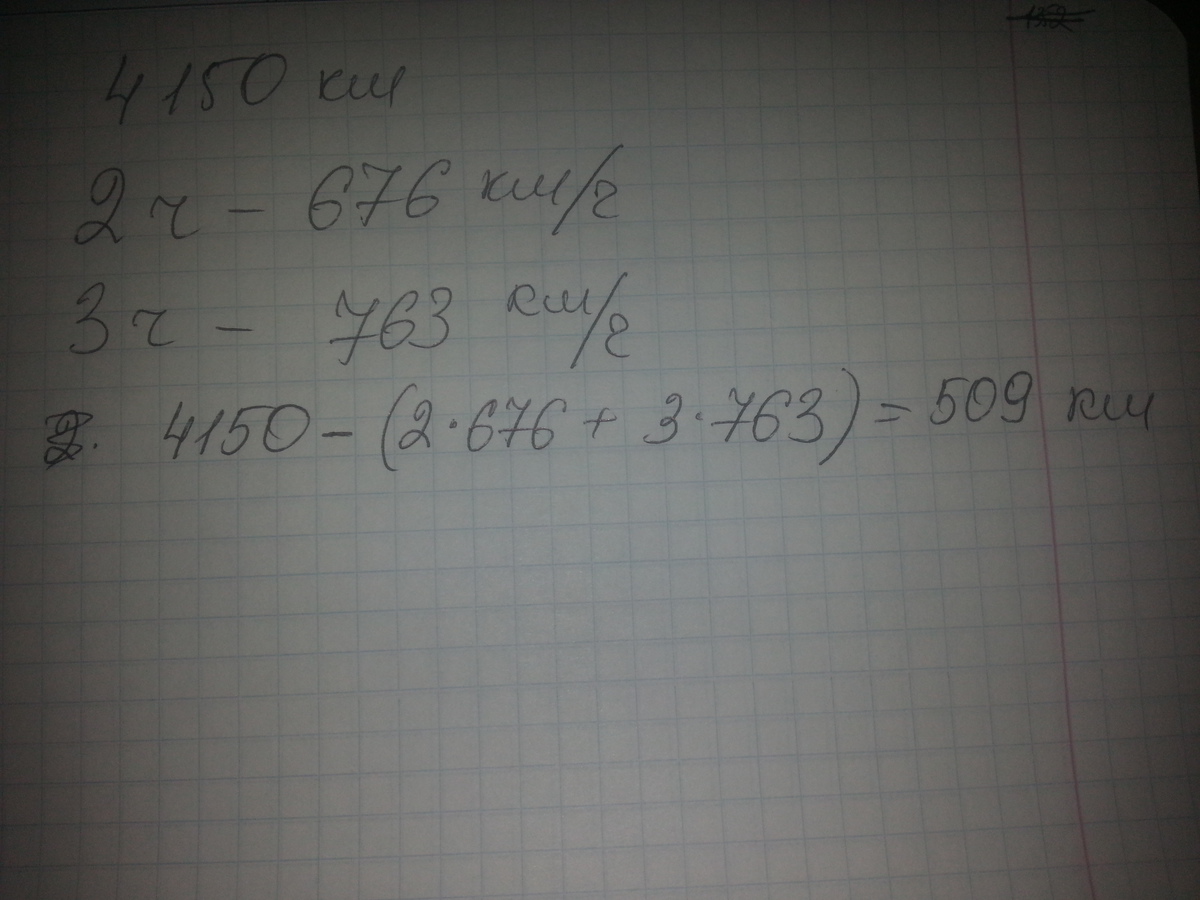 4150 км
2 ч - 676 км/ч
3 ч - 763 км/ч
4150 - (2·676 + 3·763) = 509 км